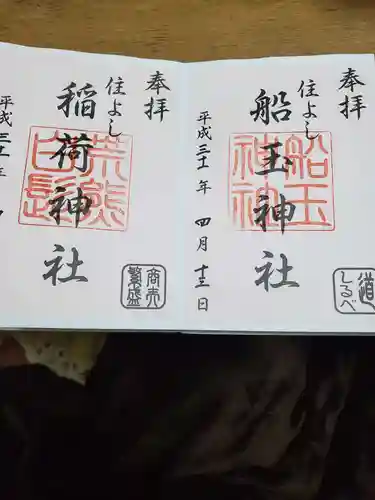 奉拝
住よし
船玉神社
平成三十一年 四月 十三日
船玉神社
道しるべ
奉拝
住よし
稲荷神社
平成三十一年
荒熊白髭
商売繁盛